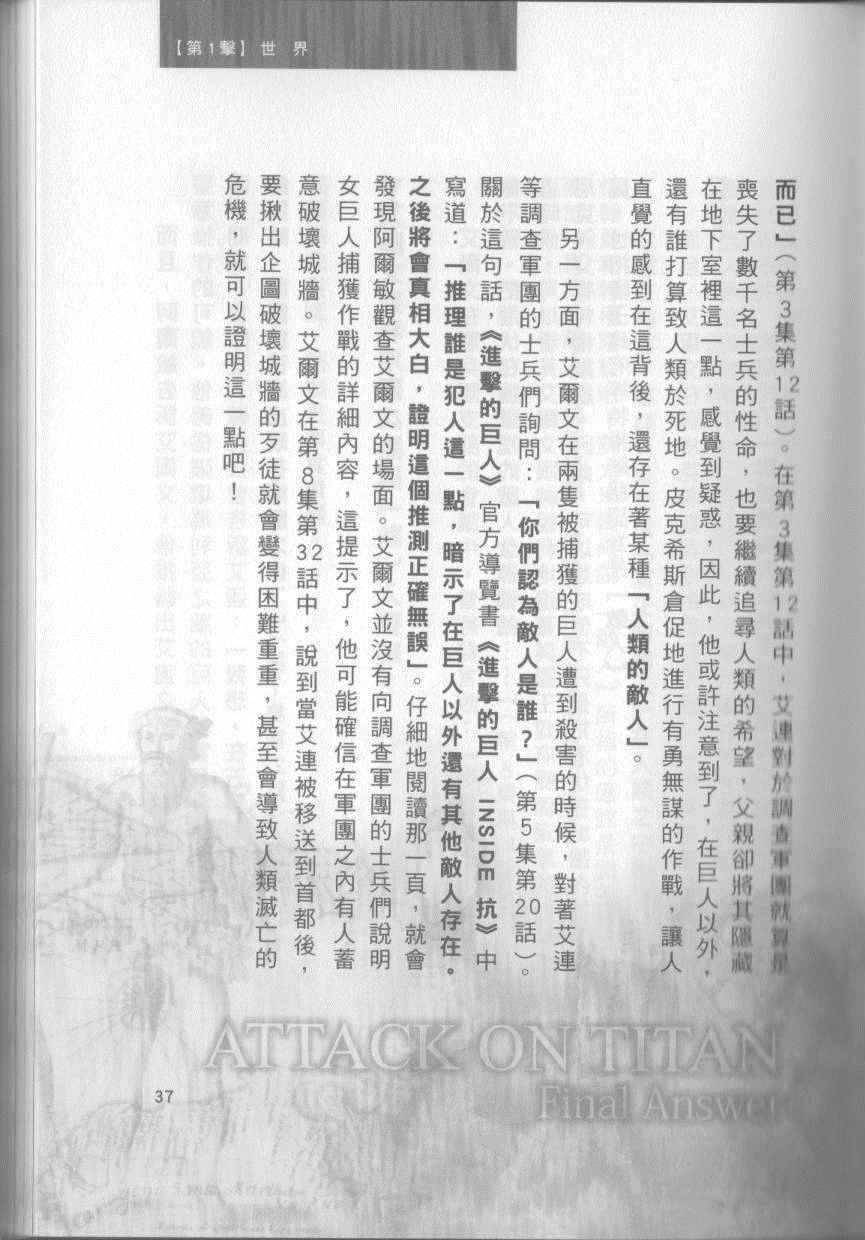 【第1擊】世 界
而已」（第3集第12話）。在第3集第12話中，艾連對於調查軍團就算是
喪失了數千名士兵的性命，也要繼續追尋人類的希望，父親卻將其隱藏
在地下室裡這一點，感覺到疑惑，因此，他或許注意到了，在巨人以外，
還有誰打算致人類於死地。皮克希斯倉促地進行有勇無謀的作戰，讓人
直覺的感到在這背後，還存在著某種「人類的敵人」。
另一方面，艾爾文在兩隻被捕獲的巨人遭到殺害的時候，對著艾連
等調查軍團的士兵們詢問：「你們認為敵人是誰？」（第5集第20話）。
關於這句話，《進擊的巨人》官方導覽書《進擊的巨人 INSIDE 抗》中
寫道：「推理誰是犯人這一點，暗示了在巨人以外還有其他敵人存在。
之後將會真相大白，證明這個推測正確無誤」。仔細地閱讀那一頁，就會
發現阿爾敏觀查艾爾文的場面。艾爾文並沒有向調查軍團的士兵們說明
女巨人捕獲作戰的詳細內容，這提示了，他可能確信在軍團之內有人蓄
意破壞城牆。艾爾文在第8集第32話中，說到當艾連被移送到首都後，
要揪出企圖破壞城牆的歹徒就會變得困難重重，甚至會導致人類滅亡的
危機，就可以證明這一點吧！
ATTACK ON TITAN
Final Answer
37